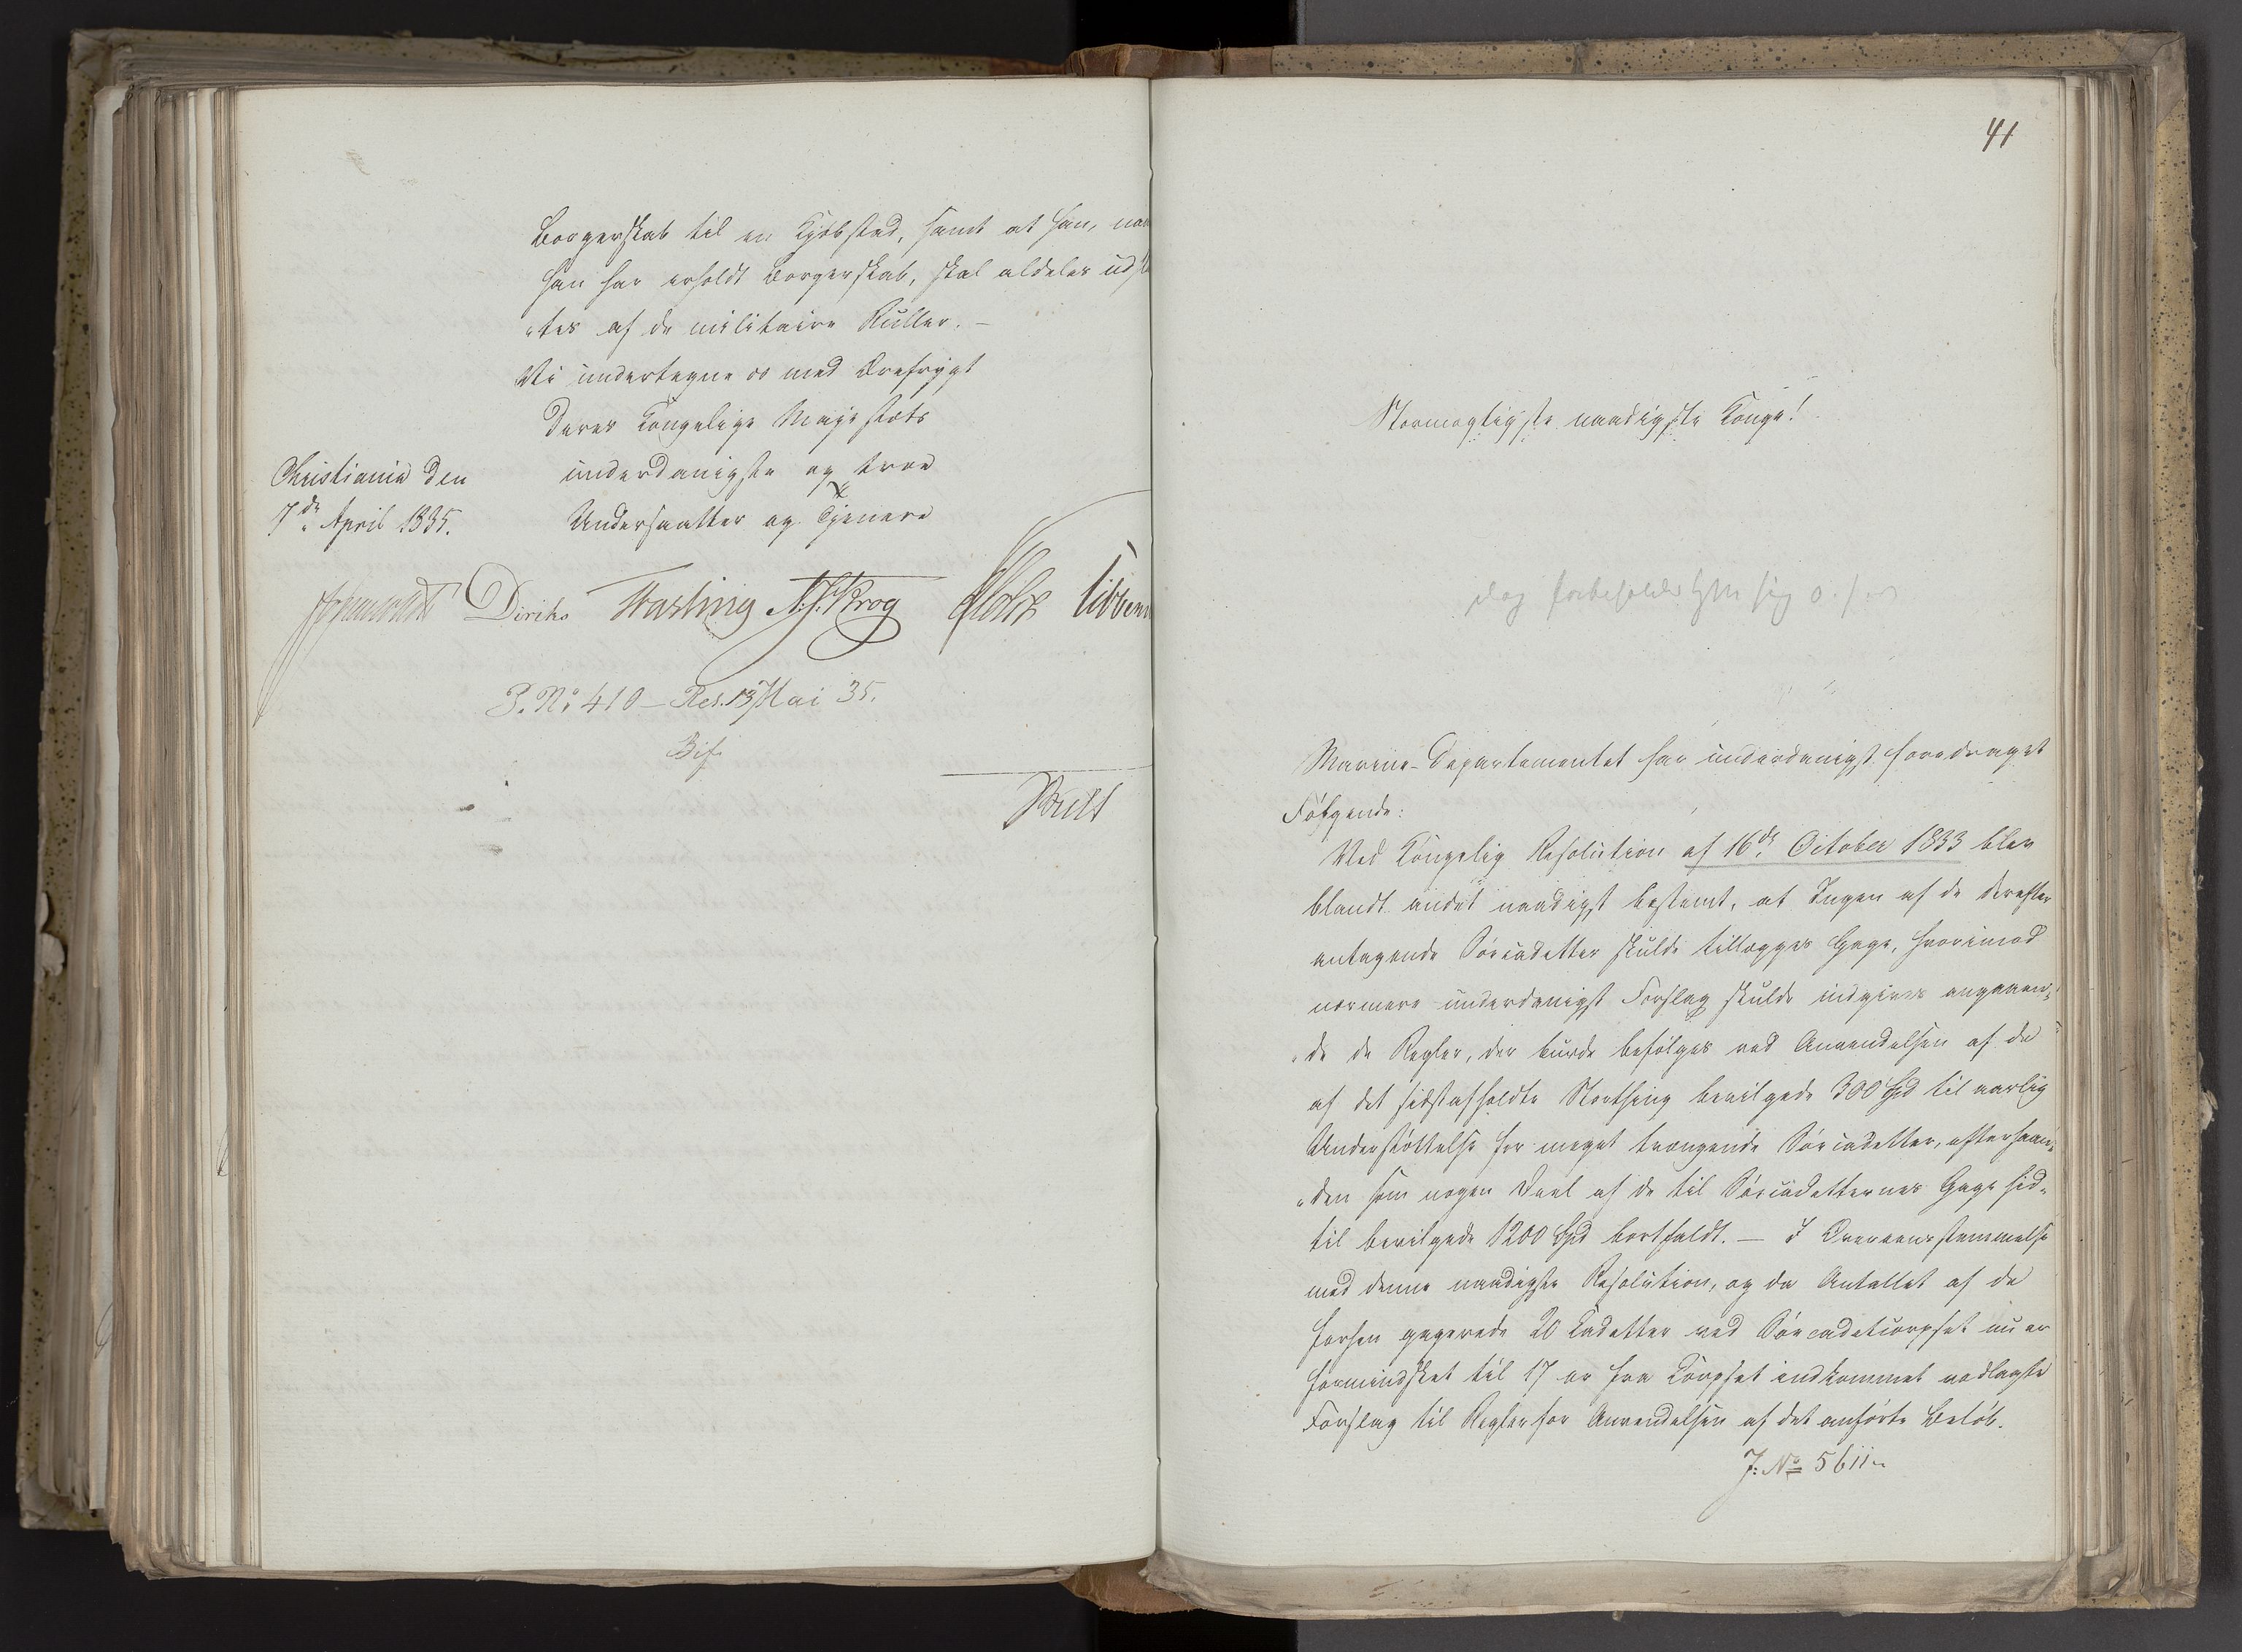 Borgerskab til en Kjøbsted, samt at han, naar
han har erholdt Borgerskab, skal aldeles udsl
„tes af de militaire Ruller. –
Vi undertegne os med Ærefrygt
Deres Kongelige Majestæts
underdanigste og troe
Undersaatter og Tjenere
Christiania den
7de April 1835.
Diriks Fasting N. J. Krog Holst Vibben
P. No. 410 – Res. 13 Mai 35.
Bif.
Bull
41
Stormægtigste naadigste Konge!
dog forbeholdes sig
Marine-Departementet har underdanigst foredraget
Følgende:
Ved Kongelig Resolution af 16de October 1833 blev
blandt andet naadigst bestemt, at Ingen af de derefter
antagende Søecadetter skulde tillægges Gage, hvorimod
nærmere underdanigst Forslag skulde indgives angaaen„
„de de Regler, der burde befølges ved Anvendelsen af de
af det sidstafholdte Storthing bevilgede 300 Spd til aarlig
Understøttelse for meget trængende Søecadetter, efterhaan„
„den som nogen Deel af de til Søecadetternes Gage hid„
til bevilgede 1200 Spd bortfaldt. – I Overeensstemmelse
med denne naadigste Resolution, og da Antallet af de
forhen gagerede 20 Cadetter ved Søecadetcorpset nu er
formindsket til 17 er fra Corpset indkommet vedlagte
Forslag til Regler for Anvendelsen af det anførte Beløb.
J: No 5611